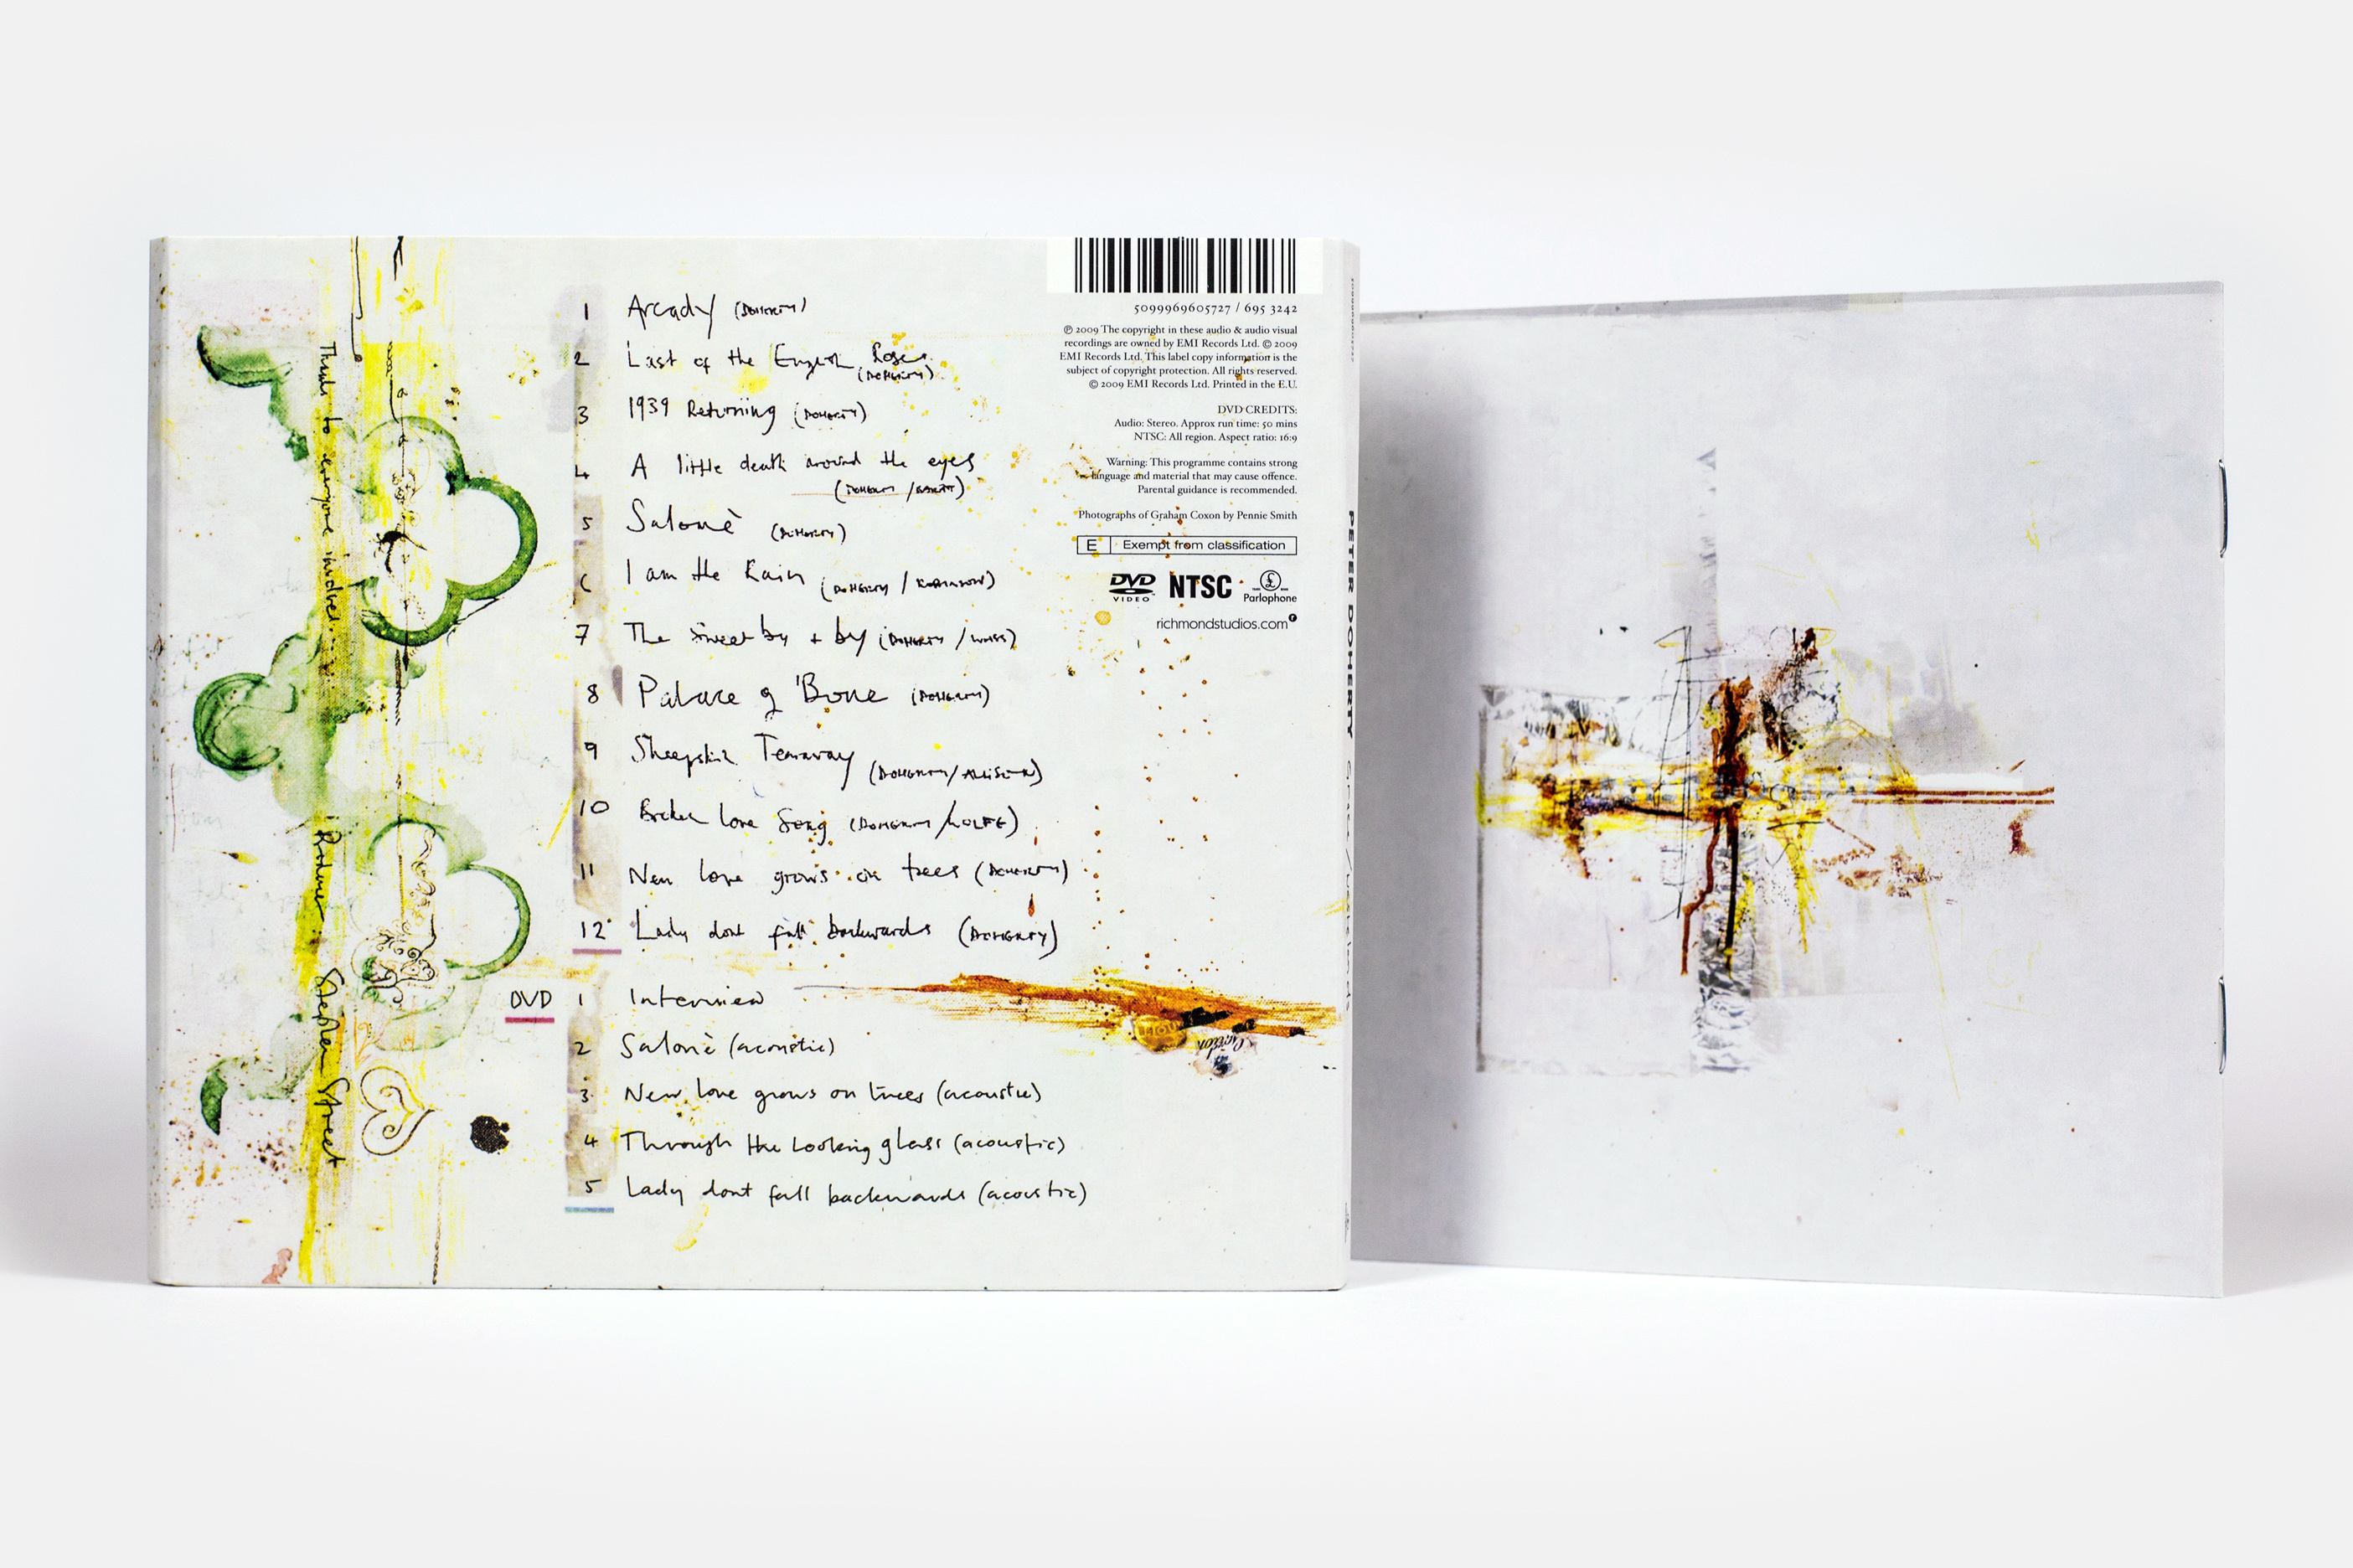 1 Arcady (DOHERTY)
2 Last of the English Roses
(DOHERTY)
3 1939 Returning (DOHERTY)
4 A little death around the eyes
(DOHERTY / BARAT)
5 Salomè (DOHERTY)
6 I am the Rain (DOHERTY / ROBINSON)
7 The Sweet by + by (DOHERTY / WASS)
8 Palace of Bone (DOHERTY)
9 Sheepskin Tearaway (DOHERTY/ALLISON)
10 Broken love Song (DOHERTY/WOLFE)
11 New love grows on trees (DOHERTY)
12 Lady dont fall backwards (DOHERTY)
DVD 1 Interview
2 Salomè (acoustic)
3 New love grows on trees (acoustic)
4 Through the Looking glass (acoustic)
5 Lady dont fall backwards (acoustic)
Thanks to everyone involved....
Stephen Street
5099969605727 / 695 3242
℗ 2009 The copyright in these audio & audio visual
recordings are owned by EMI Records Ltd. © 2009
EMI Records Ltd. This label copy information is the
subject of copyright protection. All rights reserved.
© 2009 EMI Records Ltd. Printed in the E.U.
DVD CREDITS:
Audio: Stereo. Approx run time: 50 mins
NTSC: All region. Aspect ratio: 16:9
Warning: This programme contains strong
language and material that may cause offence.
Parental guidance is recommended.
Photographs of Graham Coxon by Pennie Smith
E Exempt from classification
DVD VIDEO NTSC Parlophone
richmondstudios.com
PETER DOHERTY Grace / Wastelands